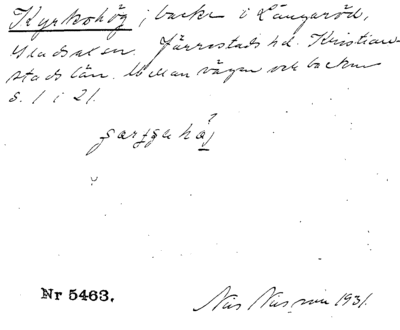 Kyrkohög; backe i Långaröd,
Gladsax sn. Järrestads hd. Kristian-
stads län. Mellan vägen och backen
s. 1 i 21.
Nr 5463.
Nils Nilsson 1931.